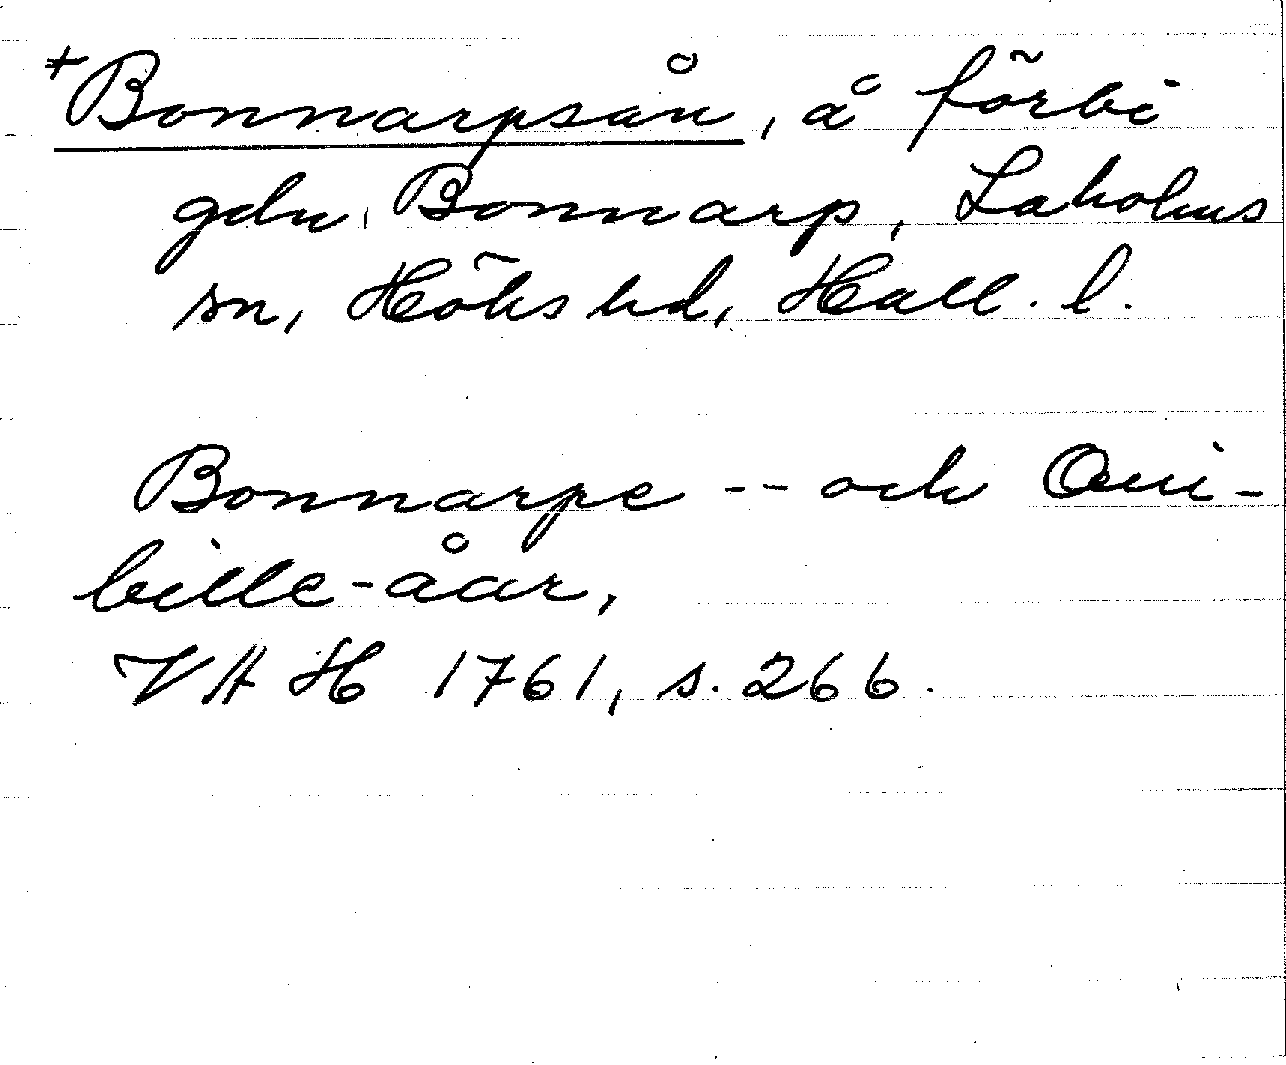 +Bonnarpsån, å förbi
gdn. Bonnarp, Laholms
sn, Höks hd, Hall. l.
Bonnarpe -- och Qui-
bille-åar,
VAH 1761, s. 266.